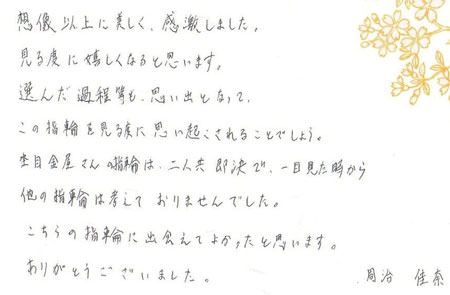 想像以上に美しく、感激しました。
見る度に嬉しくなると思います。
選んだ過程等も、思い出となって、
この指輪を見る度に思い起こされることでしょう。
杢目金屋さんの指輪は、二人共即決で、一目見た時から
他の指輪は考えておりませんでした。
こちらの指輪に出会えてよかったと思います。
ありがとうございました。
周治 佳奈